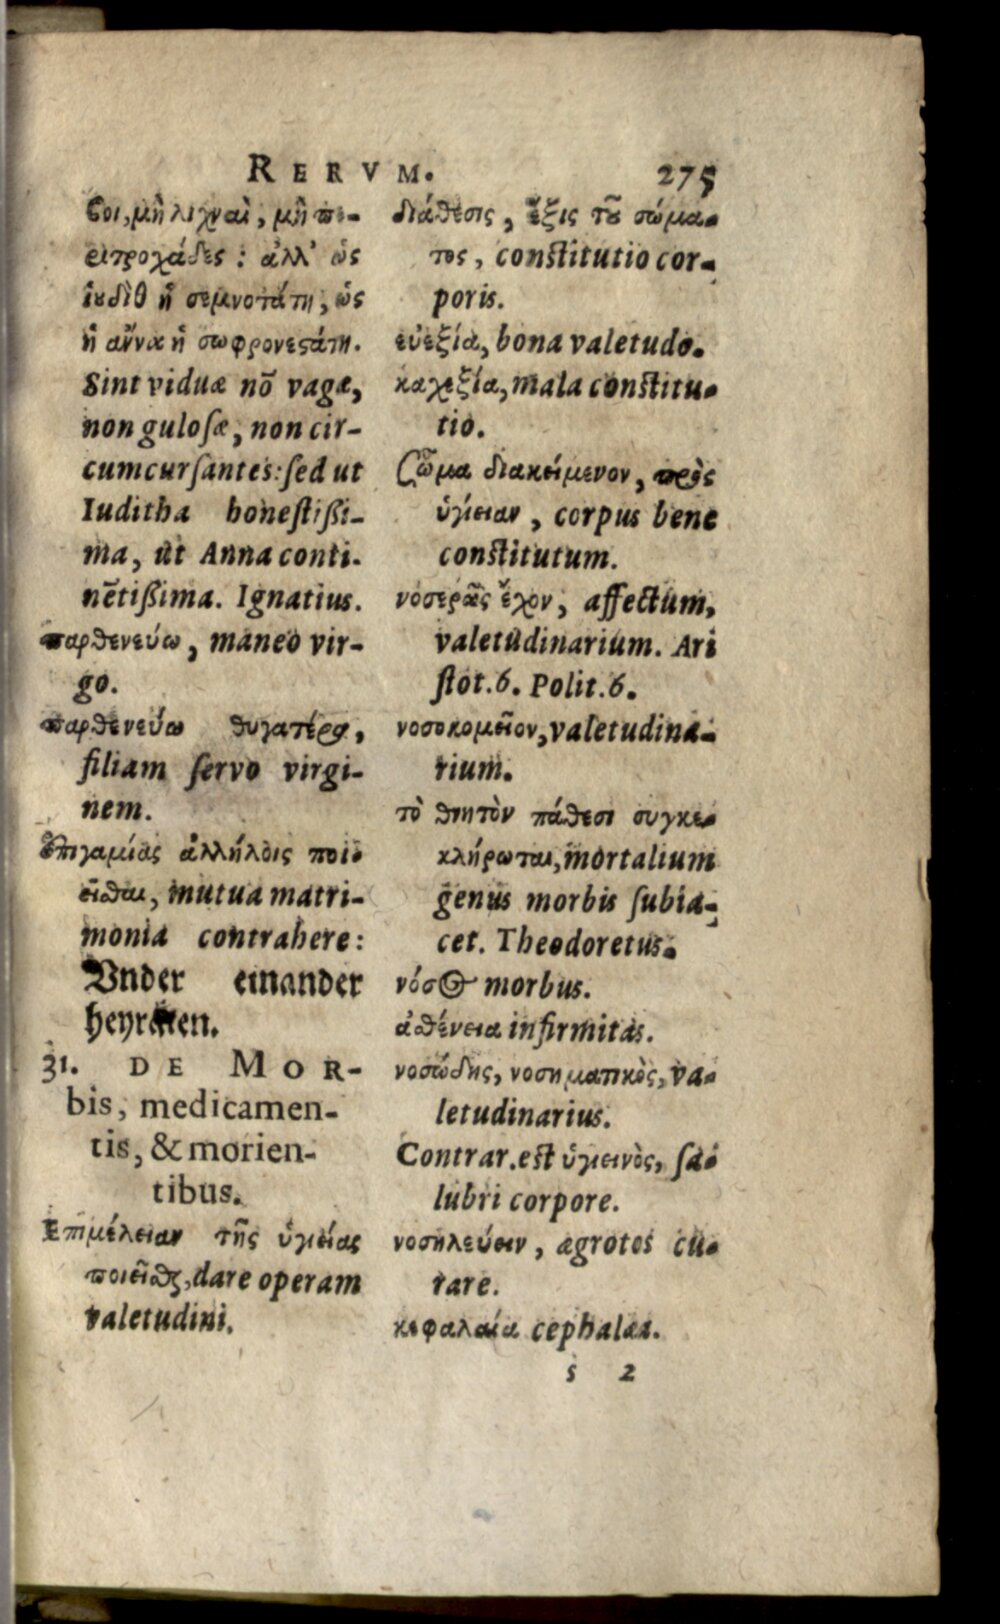 RERVM. 275
βοι, μὴ λίχναι, μὴ πε-
ριτροχάδες : ἀλλ' ὡς
ἰουδὶθ ἡ σεμνοτάτη, ὡς
ἡ ἄννα ἡ σωφρονεστάτη.
Sint viduæ nō vagæ,
non gulosæ, non cir-
cumcursantes: sed ut
Iuditha honestißi-
ma, ut Anna conti-
nētißima. Ignatius.
παρθενεύω, maneo vir-
go.
παρθενεύω θυγατέρα,
filiam servo virgi-
nem.
ἐπιγαμίας ἀλλήλοις ποι-
εῖσθαι, mutua matri-
monia contrahere:
Vnder einander
31. DE MOR-
bis, medicamen-
tis, & morien-
tibus.
Ἐπιμέλειαν τῆς ὑγιείας
ποιεῖσθαι, dare operam
valetudini.
διάθεσις, ἕξις τοῦ σώμα-
τος, constitutio cor-
poris.
εὐεξία, bona valetudo.
καχεξία, mala constitu-
tio.
Σῶμα διακείμενον, πρὸς
ὑγίειαν, corpus bene
constitutum.
νοσερῶς ἔχον, affectum,
valetudinarium. Ari
stot. 6. Polit. 6.
νοσοκομεῖον, valetudina-
rium.
τὸ θνητὸν πάθεσι συγκε-
κλήρωται, mortalium
genus morbis subia-
cet. Theodoretus.
νόσος morbus.
ἀσθένεια infirmitas.
νοσώδης, νοσηματικὸς, va-
letudinarius.
Contrar. est ὑγιεινὸς, sa-
lubri corpore.
νοσηλεύειν, ægrotos cu-
rare.
κεφαλαία cephalæa.
s 2